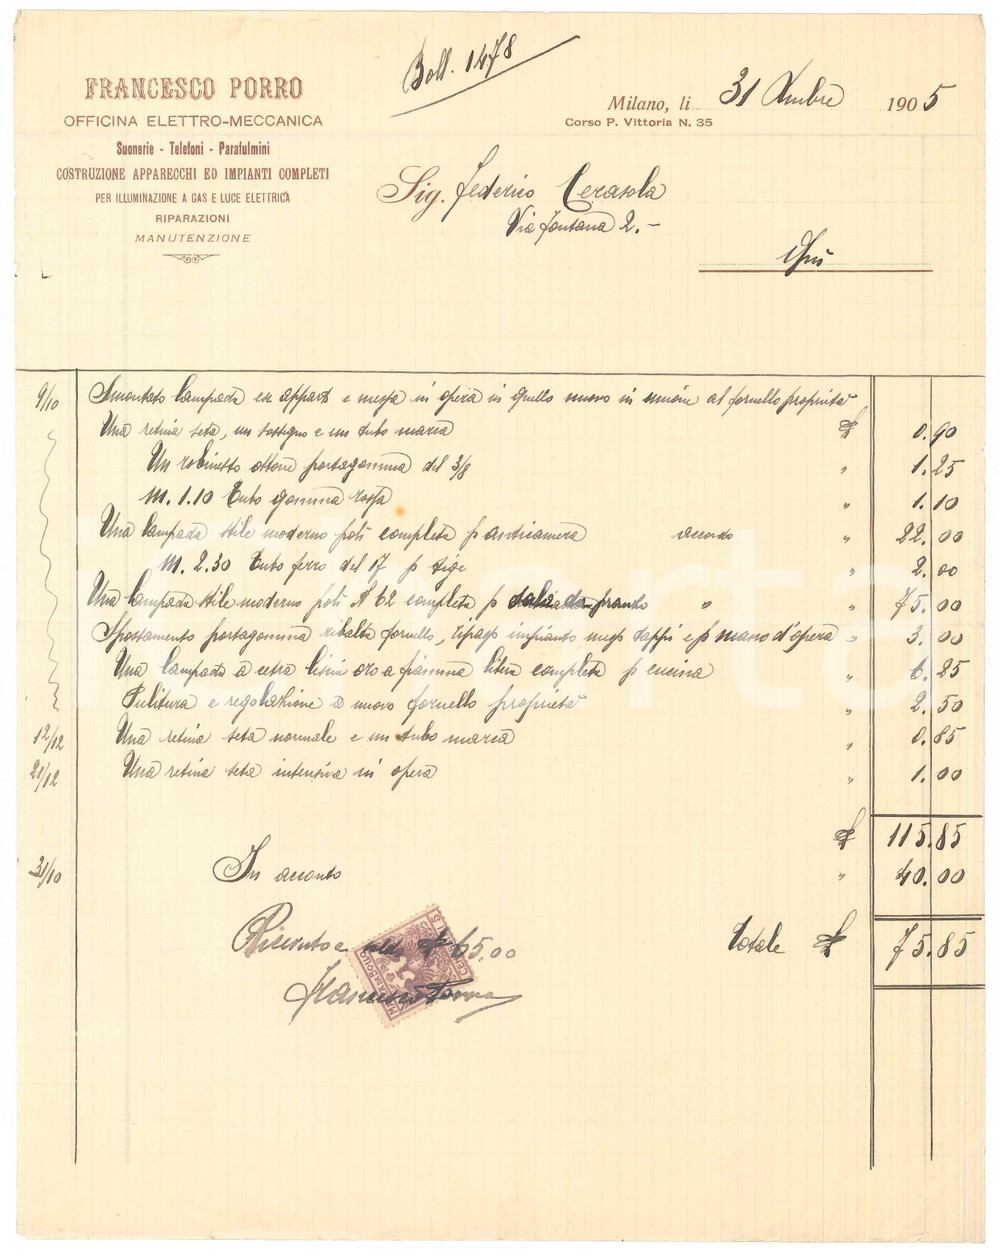 Boll. 1478
FRANCESCO PORRO
OFFICINA ELETTRO-MECCANICA
Suonerie - Telefoni - Parafulmini
COSTRUZIONE APPARECCHI ED IMPIANTI COMPLETI
PER ILLUMINAZIONE A GAS E LUCE ELETTRICA
RIPARAZIONI
MANUTENZIONE
Milano, li 31 Xmbre 1905
Corso P. Vittoria N. 35
Sig. Federico Cerasola
Via Fontana 2.-
9/10 Smontato lampada ex appart e messa in opera in quello nuovo in unione al fornello proprietà
Una retina seta, un sostegno e un tubo marca £ 0.90
Un robinetto ottone portagomma del 3/8 " 1.25
m. 1.10 Tubo gomma rossa " 1.10
Una lampada stile moderno completa p anticamera accordo " 22.00
m. 2.30 Tubo ferro del 17 p tige " 2.00
Una lampada stile moderno N 62 completa p sala da pranzo " " 75.00
Spostamento portagomma ribalta fornello, impianto tappi e p mano d'opera " 3.00
Una lampada a cetra oro a fiamma libera completa p cucina " 6.25
Pulitura e regolazione a nuovo fornello proprietà " 2.50
12/12 Una retina seta normale e un tubo marca " 0.85
21/12 Una retina seta intensiva in opera " 1.00
£ 115.85
31/10 In acconto " 40.00
Totale £ 75.85
Ricevuto a £ 65,00
Francesco Porro
MARCA DA BOLLO
CENTESIMI 5